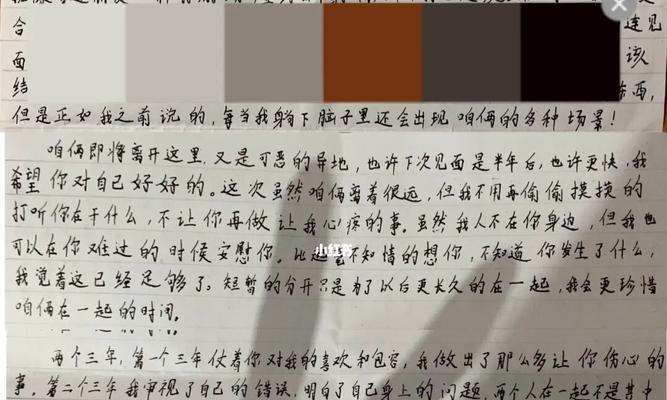 合
面
结
连见
该
东西,
但是正如我之前说的,每当我躺下脑子里还会出现咱俩的各种场景!
咱俩即将离开这里,又是可恶的异地,也许下次见面是半年后,也许更快,我
希望你对自己好好的。这次虽然咱俩离着很远,但我不用再偷偷摸摸的
打听你在干什么,不让你再做让我心疼的事。虽然我人不在你身边,但我也
可以在你难过的时候安慰你。比 不知情的想你,不知道你发生了什么,
我觉着这已经足够了。短暂的分开只是为了以后更长久的在一起,我会更珍惜
咱俩在一起的时间。
小红书
两个三年,第一个三年仗着你对我的喜欢和包容,我做出了那么多让你伤心的
事。第二个三年我审视了自己的错误,明白了自己身上的问题,两个人在一起不是其中